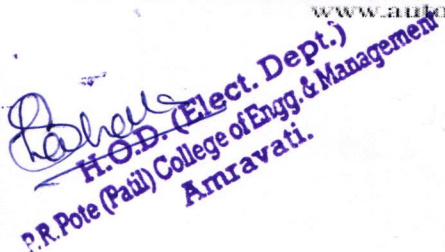 www.auto
H.O.D. (Elect. Dept.)
P.R.Pote (Patil) College of Engg. & Management
Amravati.